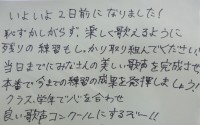 いよいよ2日前になりました!
恥ずかしがらず、楽しく歌えるように
残りの練習もしっかり取り組んでください!
当日までにみなさんの美しい歌声を完成させ
本番で今までの練習の成果を発揮しましょう!
クラス、学年で心を合わせ
良い歌声コンクールにするぞー!!